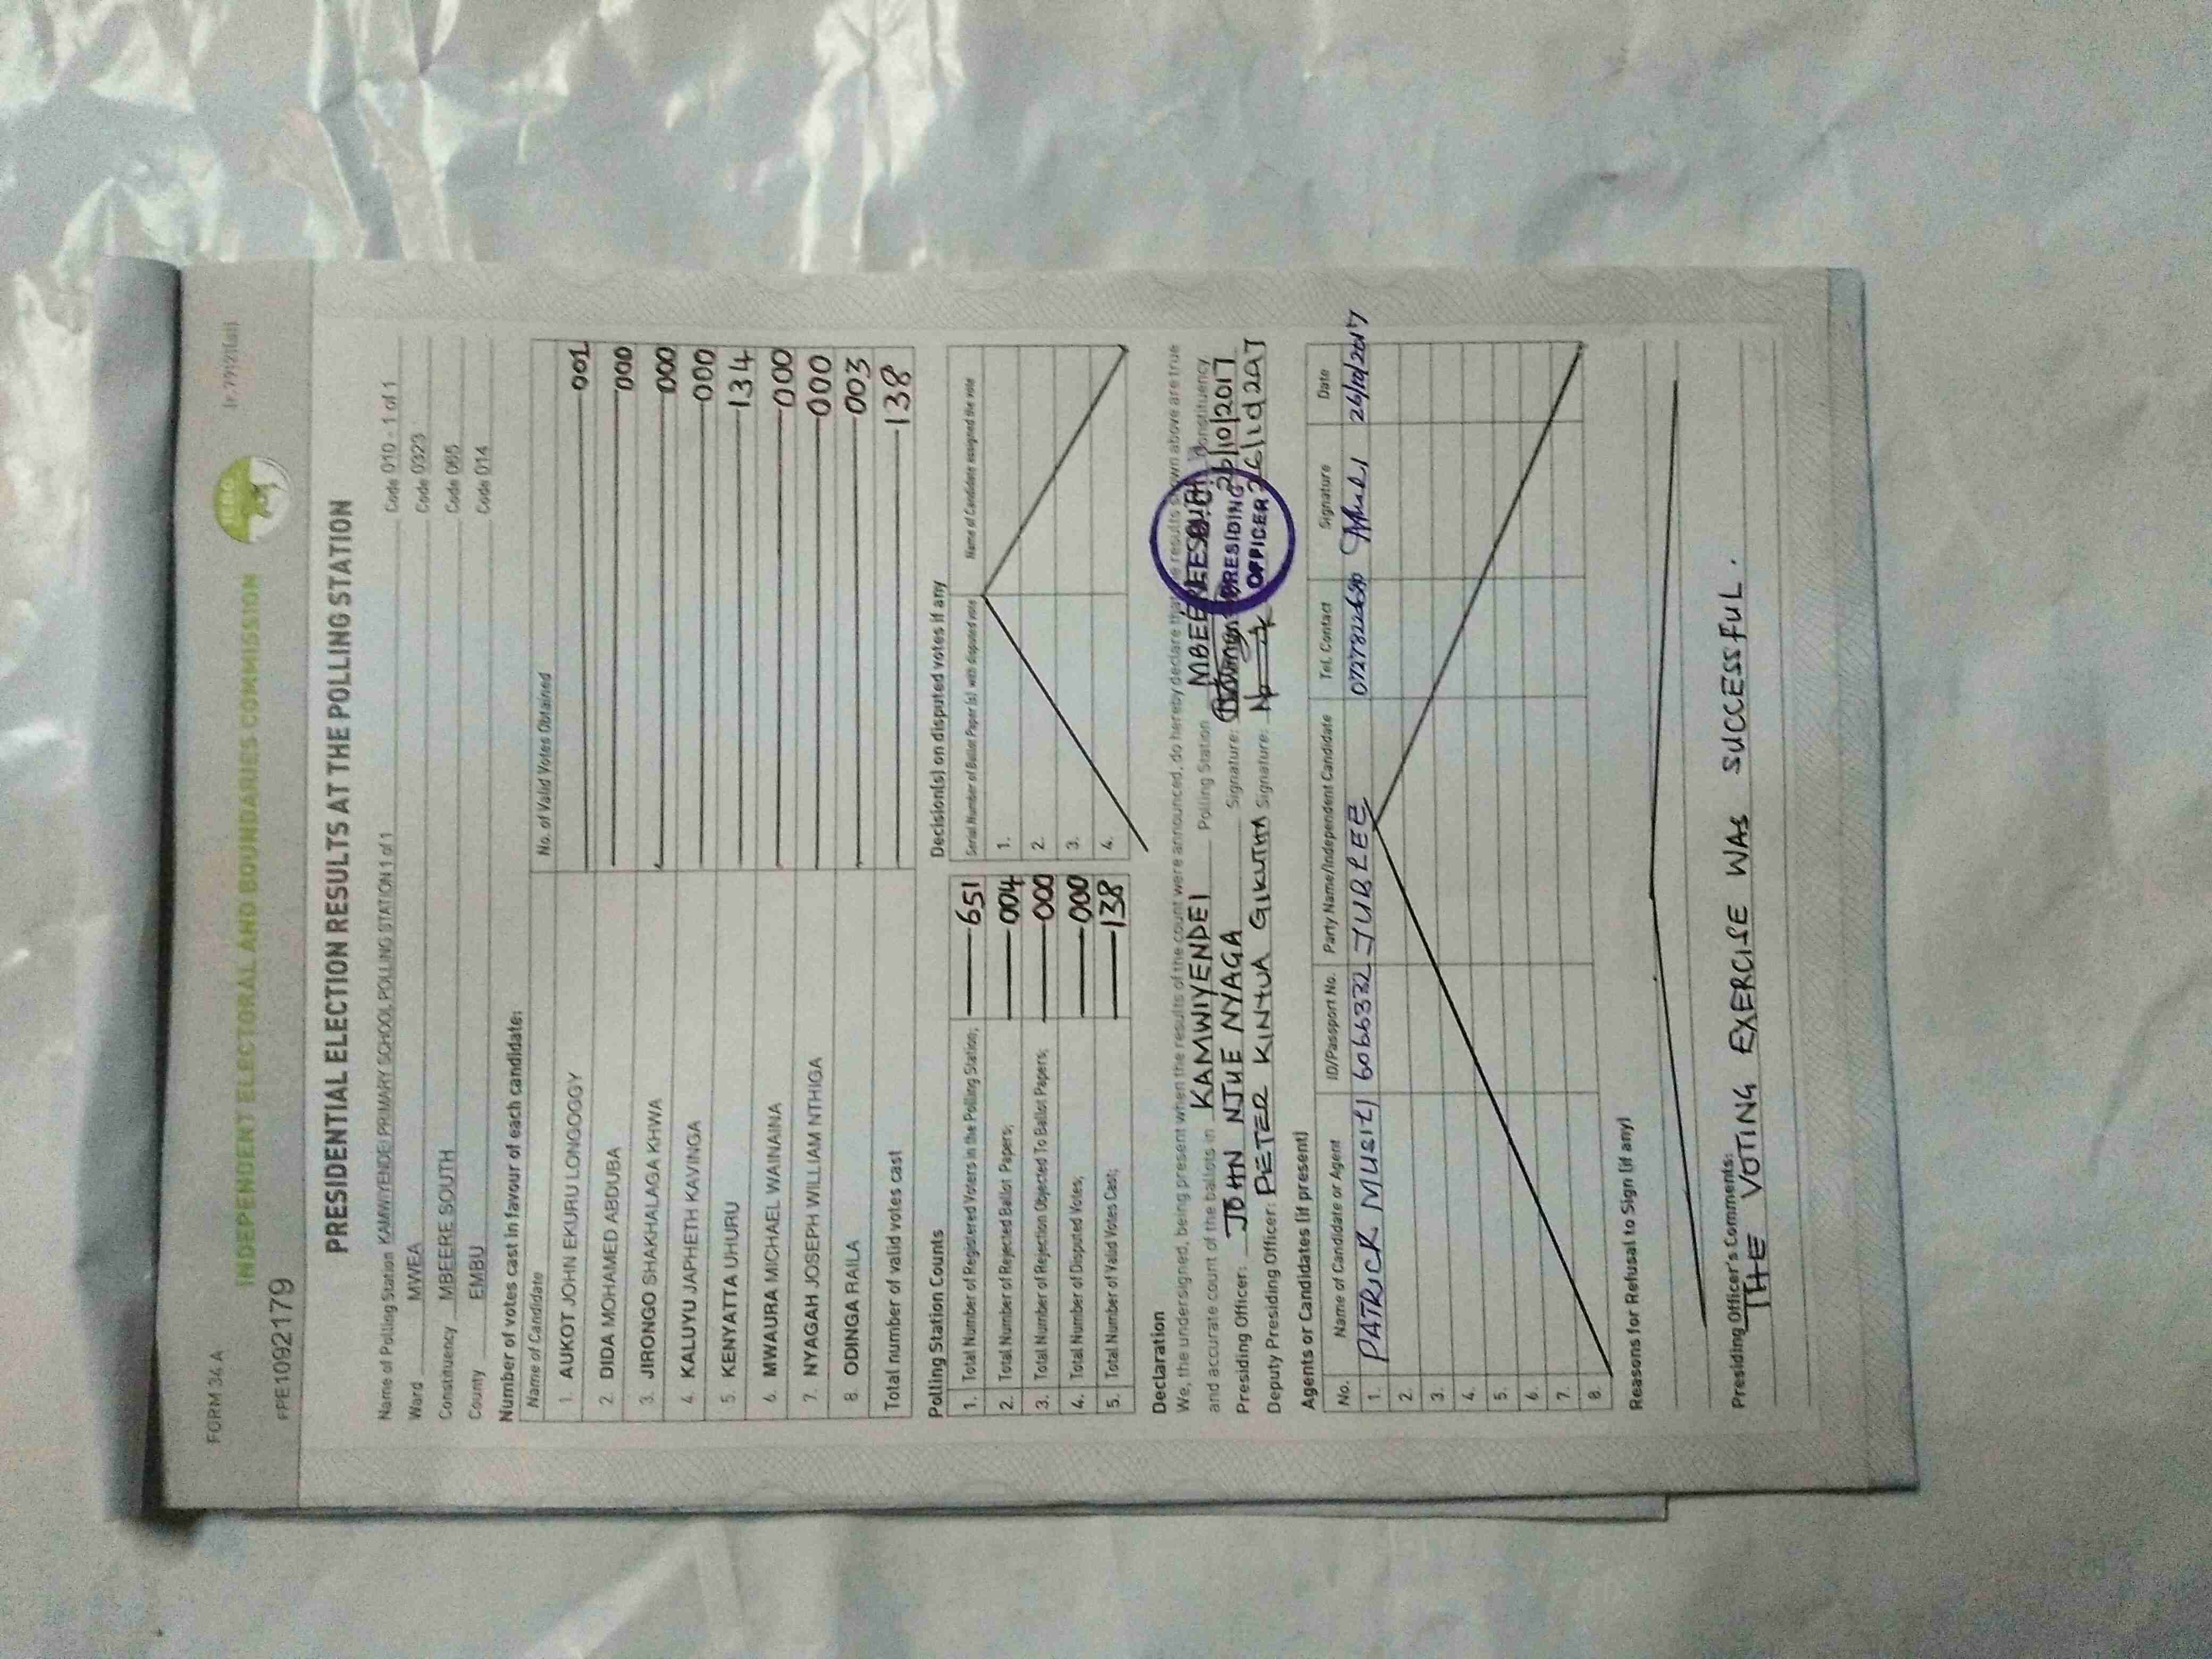 FORM 34 A
INDEPENDENT ELECTORAL AND BOUNDARIES COMMISSION
IEBC
PRE1092179
PRESIDENTIAL ELECTION RESULTS AT THE POLLING STATION
Name of Polling Station KAMWIYENDEI PRIMARY SCHOOL POLLING STATION 1 of 1 Code 010 - 1 of 1
Ward MWEA Code 0323
Constituency MBEERE SOUTH Code 065
County EMBU Code 014
Number of votes cast in favour of each candidate:
Name of Candidate No. of Valid Votes Obtained
1. AUKOT JOHN EKURU LONGOGGY 001
2. DIDA MOHAMED ABDUBA 000
3. JIRONGO SHAKHALAGA KHWA 000
4. KALUYU JAPHETH KAVINGA 000
5. KENYATTA UHURU 134
6. MWAURA MICHAEL WAINAINA 000
7. NYAGAH JOSEPH WILLIAM NTHIGA 000
8. ODINGA RAILA 003
Total number of valid votes cast 138
Polling Station Counts
1. Total Number of Registered Voters in the Polling Station; 651
2. Total Number of Rejected Ballot Papers; 004
3. Total Number of Rejection Objected To Ballot Papers; 000
4. Total Number of Disputed Votes; 000
5. Total Number of Valid Votes Cast; 138
Decision(s) on disputed votes if any
Serial Number of Ballot Paper (s) with disputed vote Name of Candidate assigned the vote
1.
2.
3.
4.
Declaration
We, the undersigned, being present when the results of the count were announced, do hereby declare that the results shown above are true
and accurate count of the ballots in KAMWIYENDEI Polling Station MBEERE Constituency
Presiding Officer: JOHN NJUE NYAGA Signature: 26/10/2017
Deputy Presiding Officer: PETER KINTUA GIKUTHA Signature:
PRESIDING
OFFICER
Agents or Candidates (if present)
No. Name of Candidate or Agent ID/Passport No. Party Name/Independent Candidate Tel. Contact Signature Date
1. PATRICK MUSILI JUBLEE 26/10/2017
2.
3.
4.
5.
6.
7.
8.
Reasons for Refusal to Sign (if any)
Presiding Officer's Comments:
THE VOTING EXERCISE WAS SUCCESSFUL.